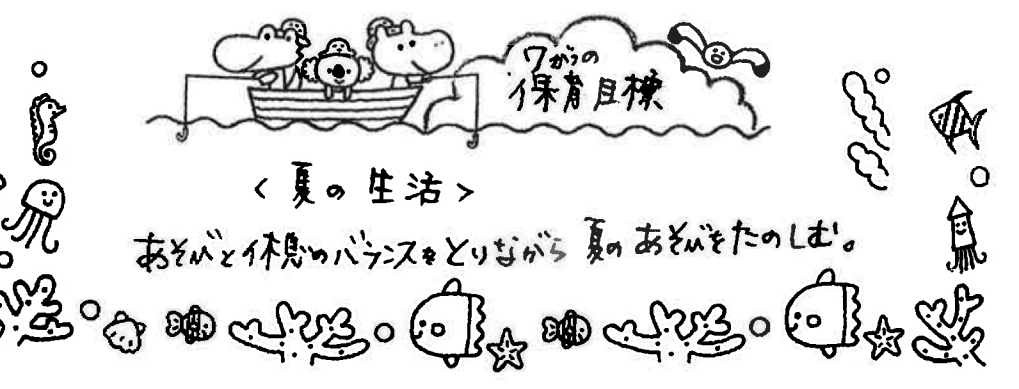 7がつの
保育目標
<夏の生活>
あそびと休息のバランスをとりながら 夏のあそびをたのしむ。